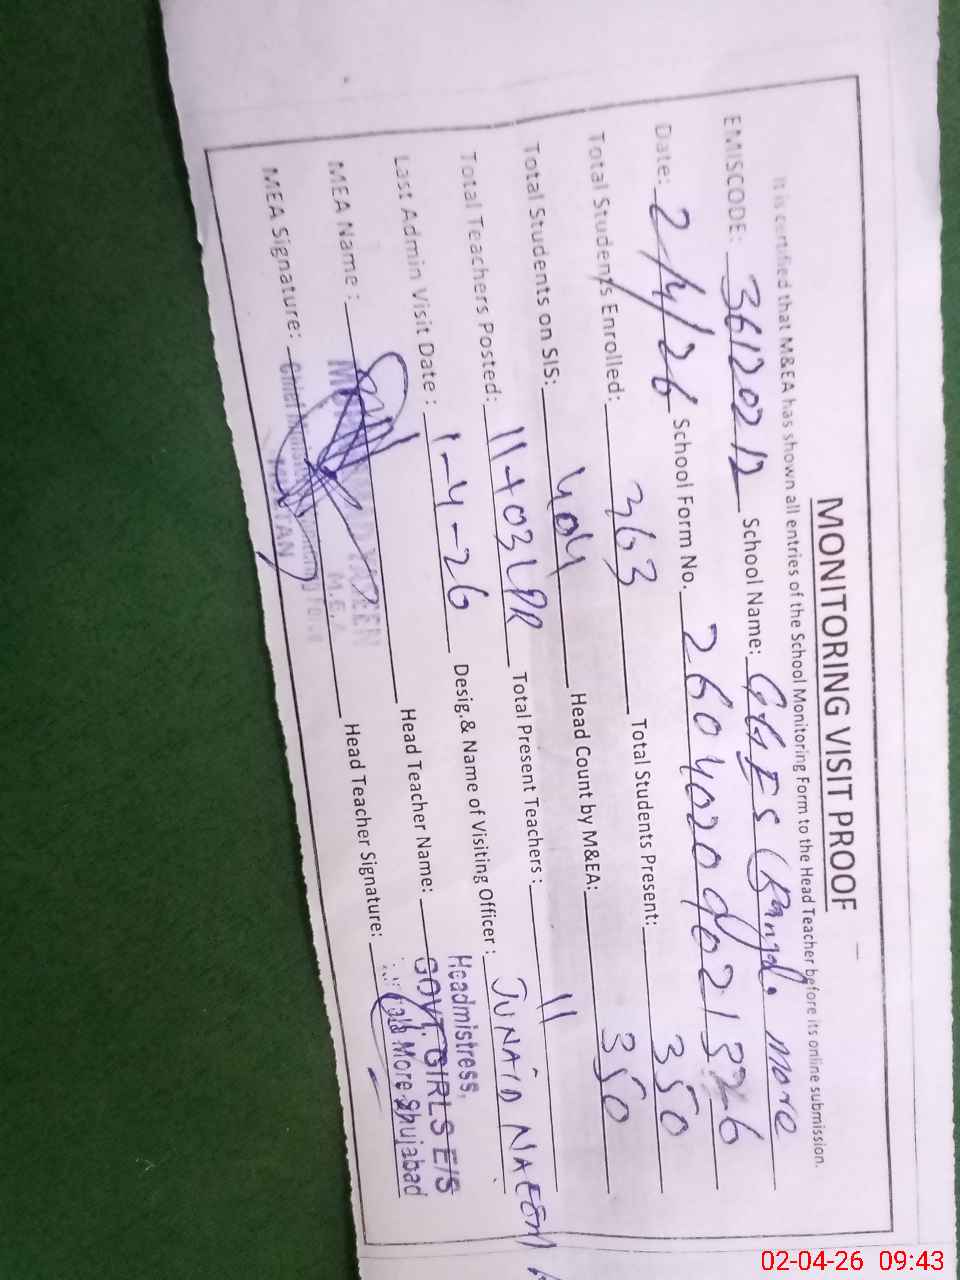 MONITORING VISIT PROOF
It is certified that M&EA has shown all entries of the School Monitoring Form to the Head Teacher before its online submission.
EMISCODE: 36120212 School Name: GGES Bangal. more
Date: 2/4/26 School Form No. 2604020
Total Students Enrolled: 363 Total Students Present: 350
Total Students on SIS: 404 Head Count by M&EA: 350
Total Teachers Posted: 11+03 Total Present Teachers: 11
Last Admin Visit Date: 1-4-26 Desig.& Name of Visiting Officer: JUNAID NAEEM
MEA Name: Head Teacher Name:
MEA Signature: Head Teacher Signature:
M.E.A
Headmistress,
GOVT. GIRLS E/S
More Shujabad
02-04-26 09:43